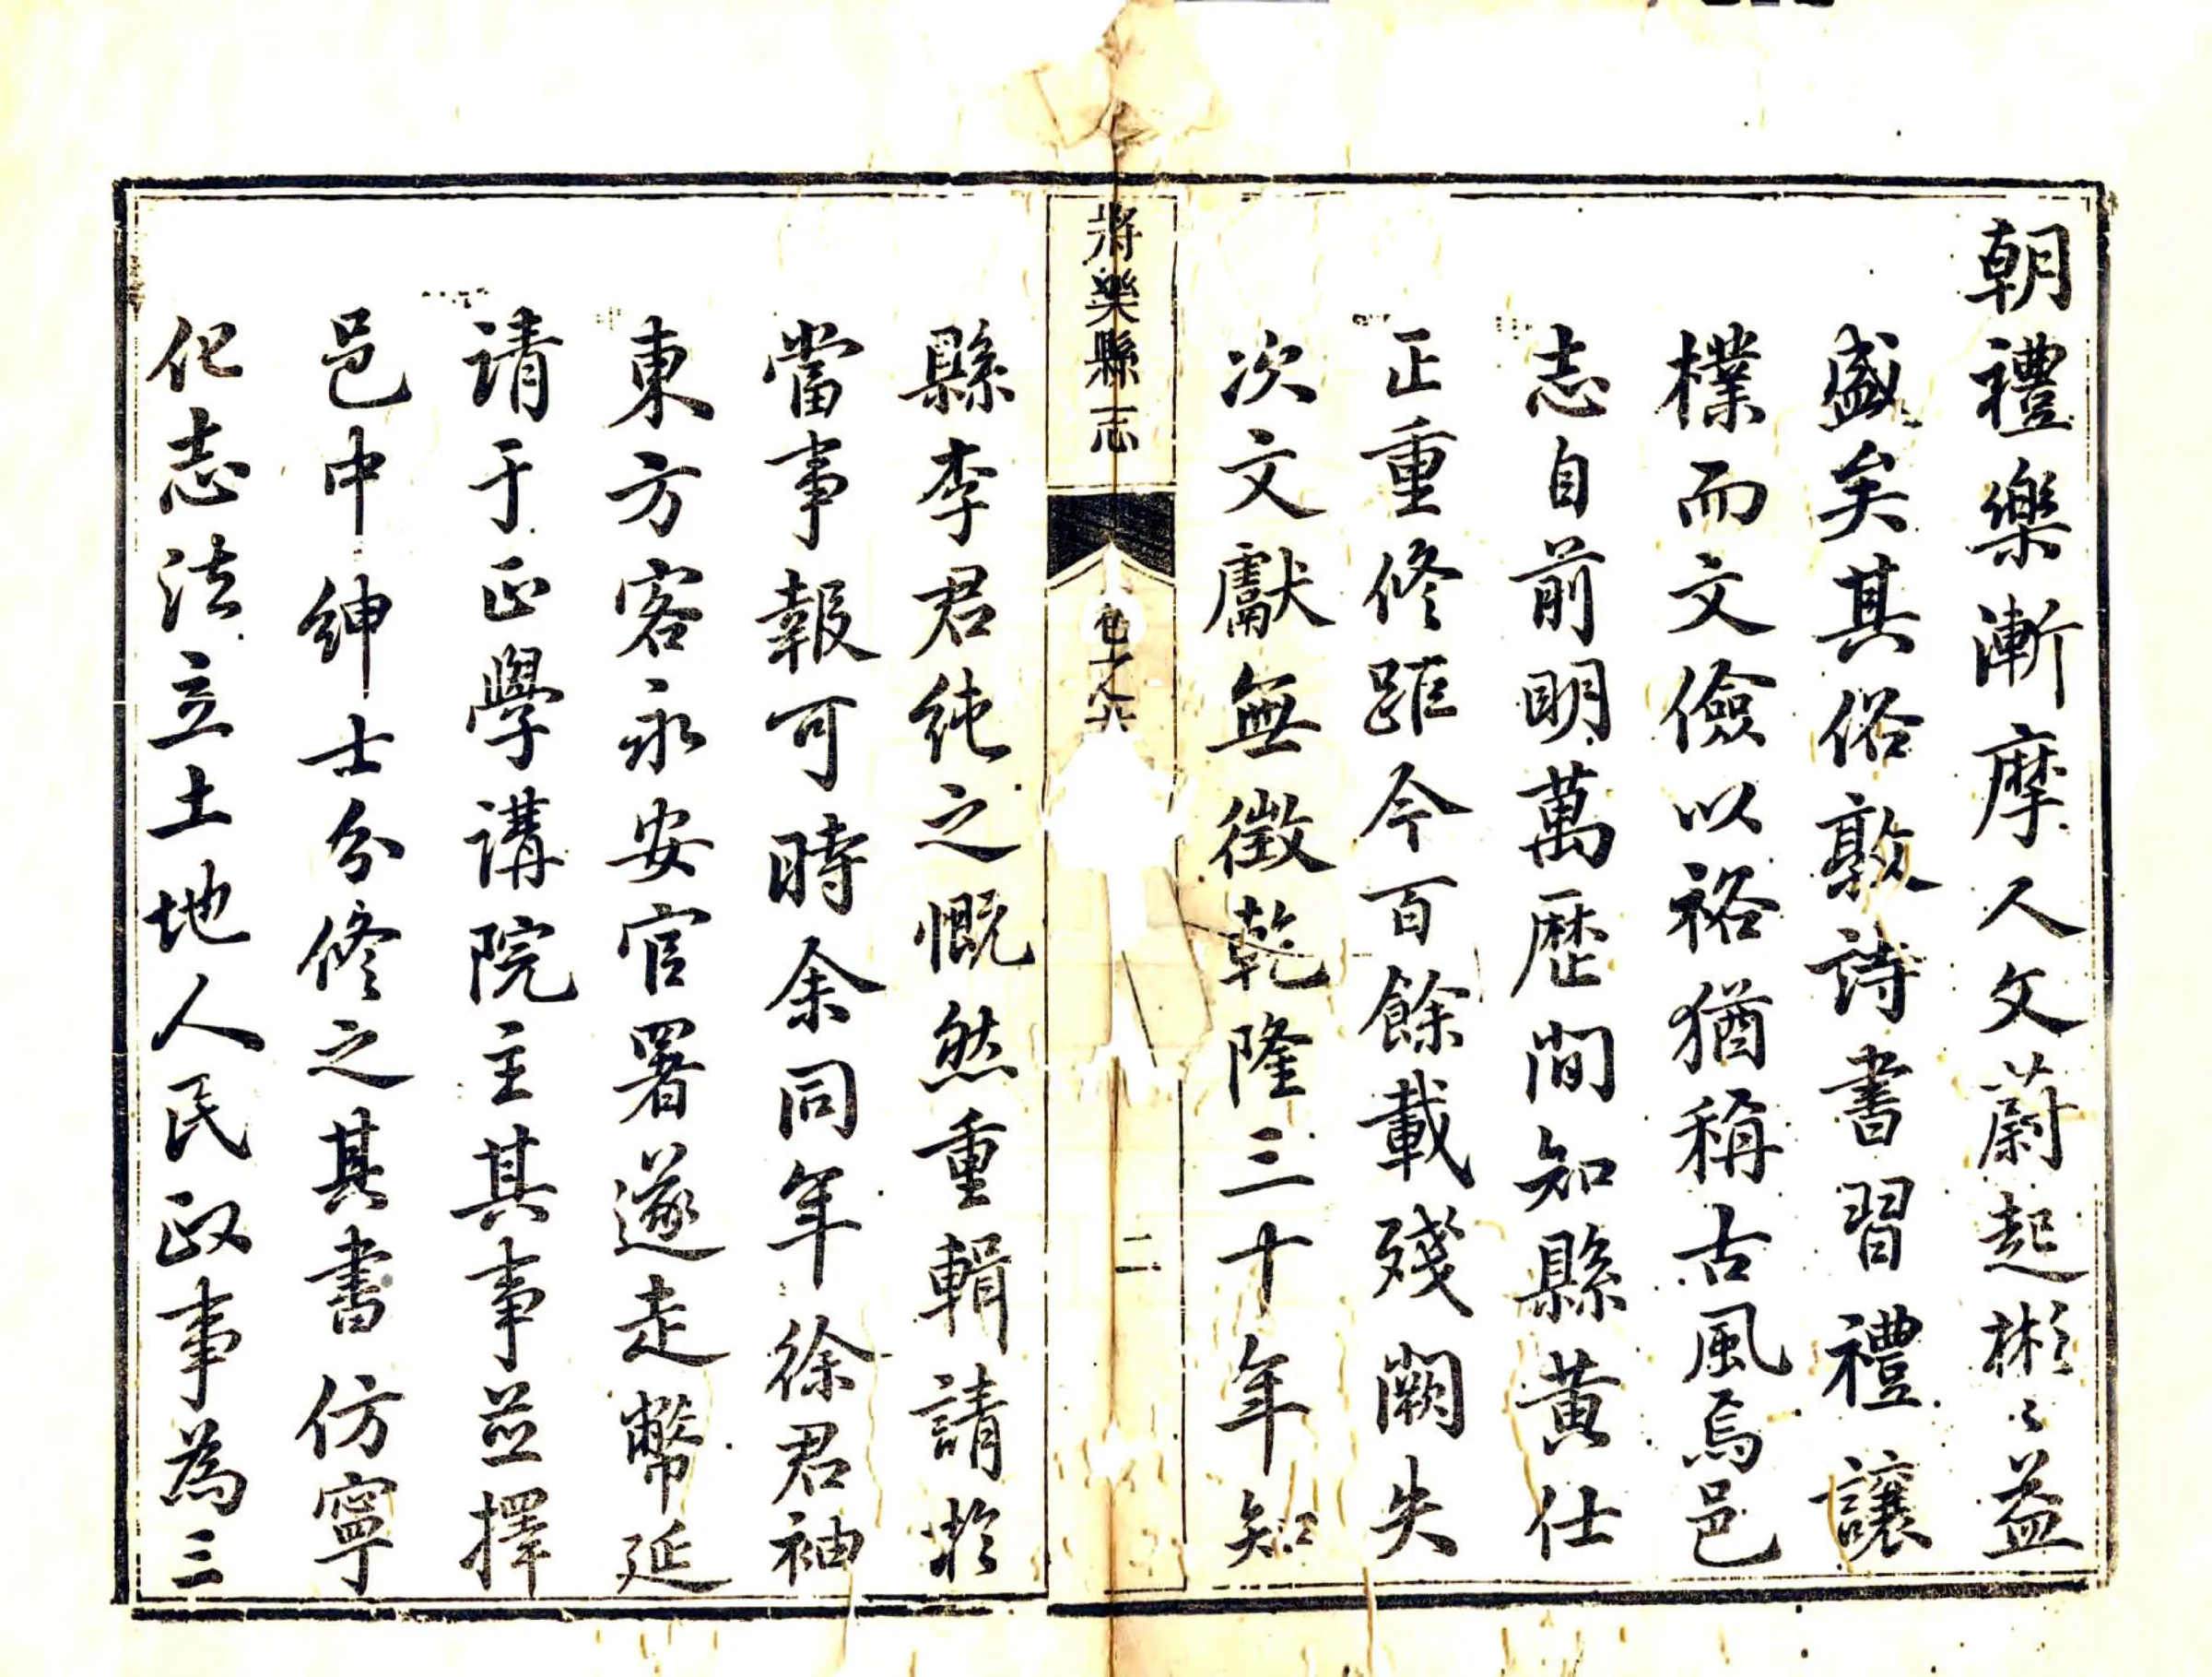 朝禮樂漸摩人文蔚起彬〻益
盛矣其俗敦詩書習禮讓
樸而文儉以裕猶稱古風焉邑
志自前明萬歷間知縣黃仕
正重修距今百餘載殘闕失
次文獻無徵乾隆三十年知
將樂縣志
卷之
二
縣李君純之慨然重輯請於
當事報可時余同年徐君袖
東方客永安官署遂走幣延
请于正學講院主其事並擇
邑中紳士分修之其書仿寧
化志法立土地人民政事為三